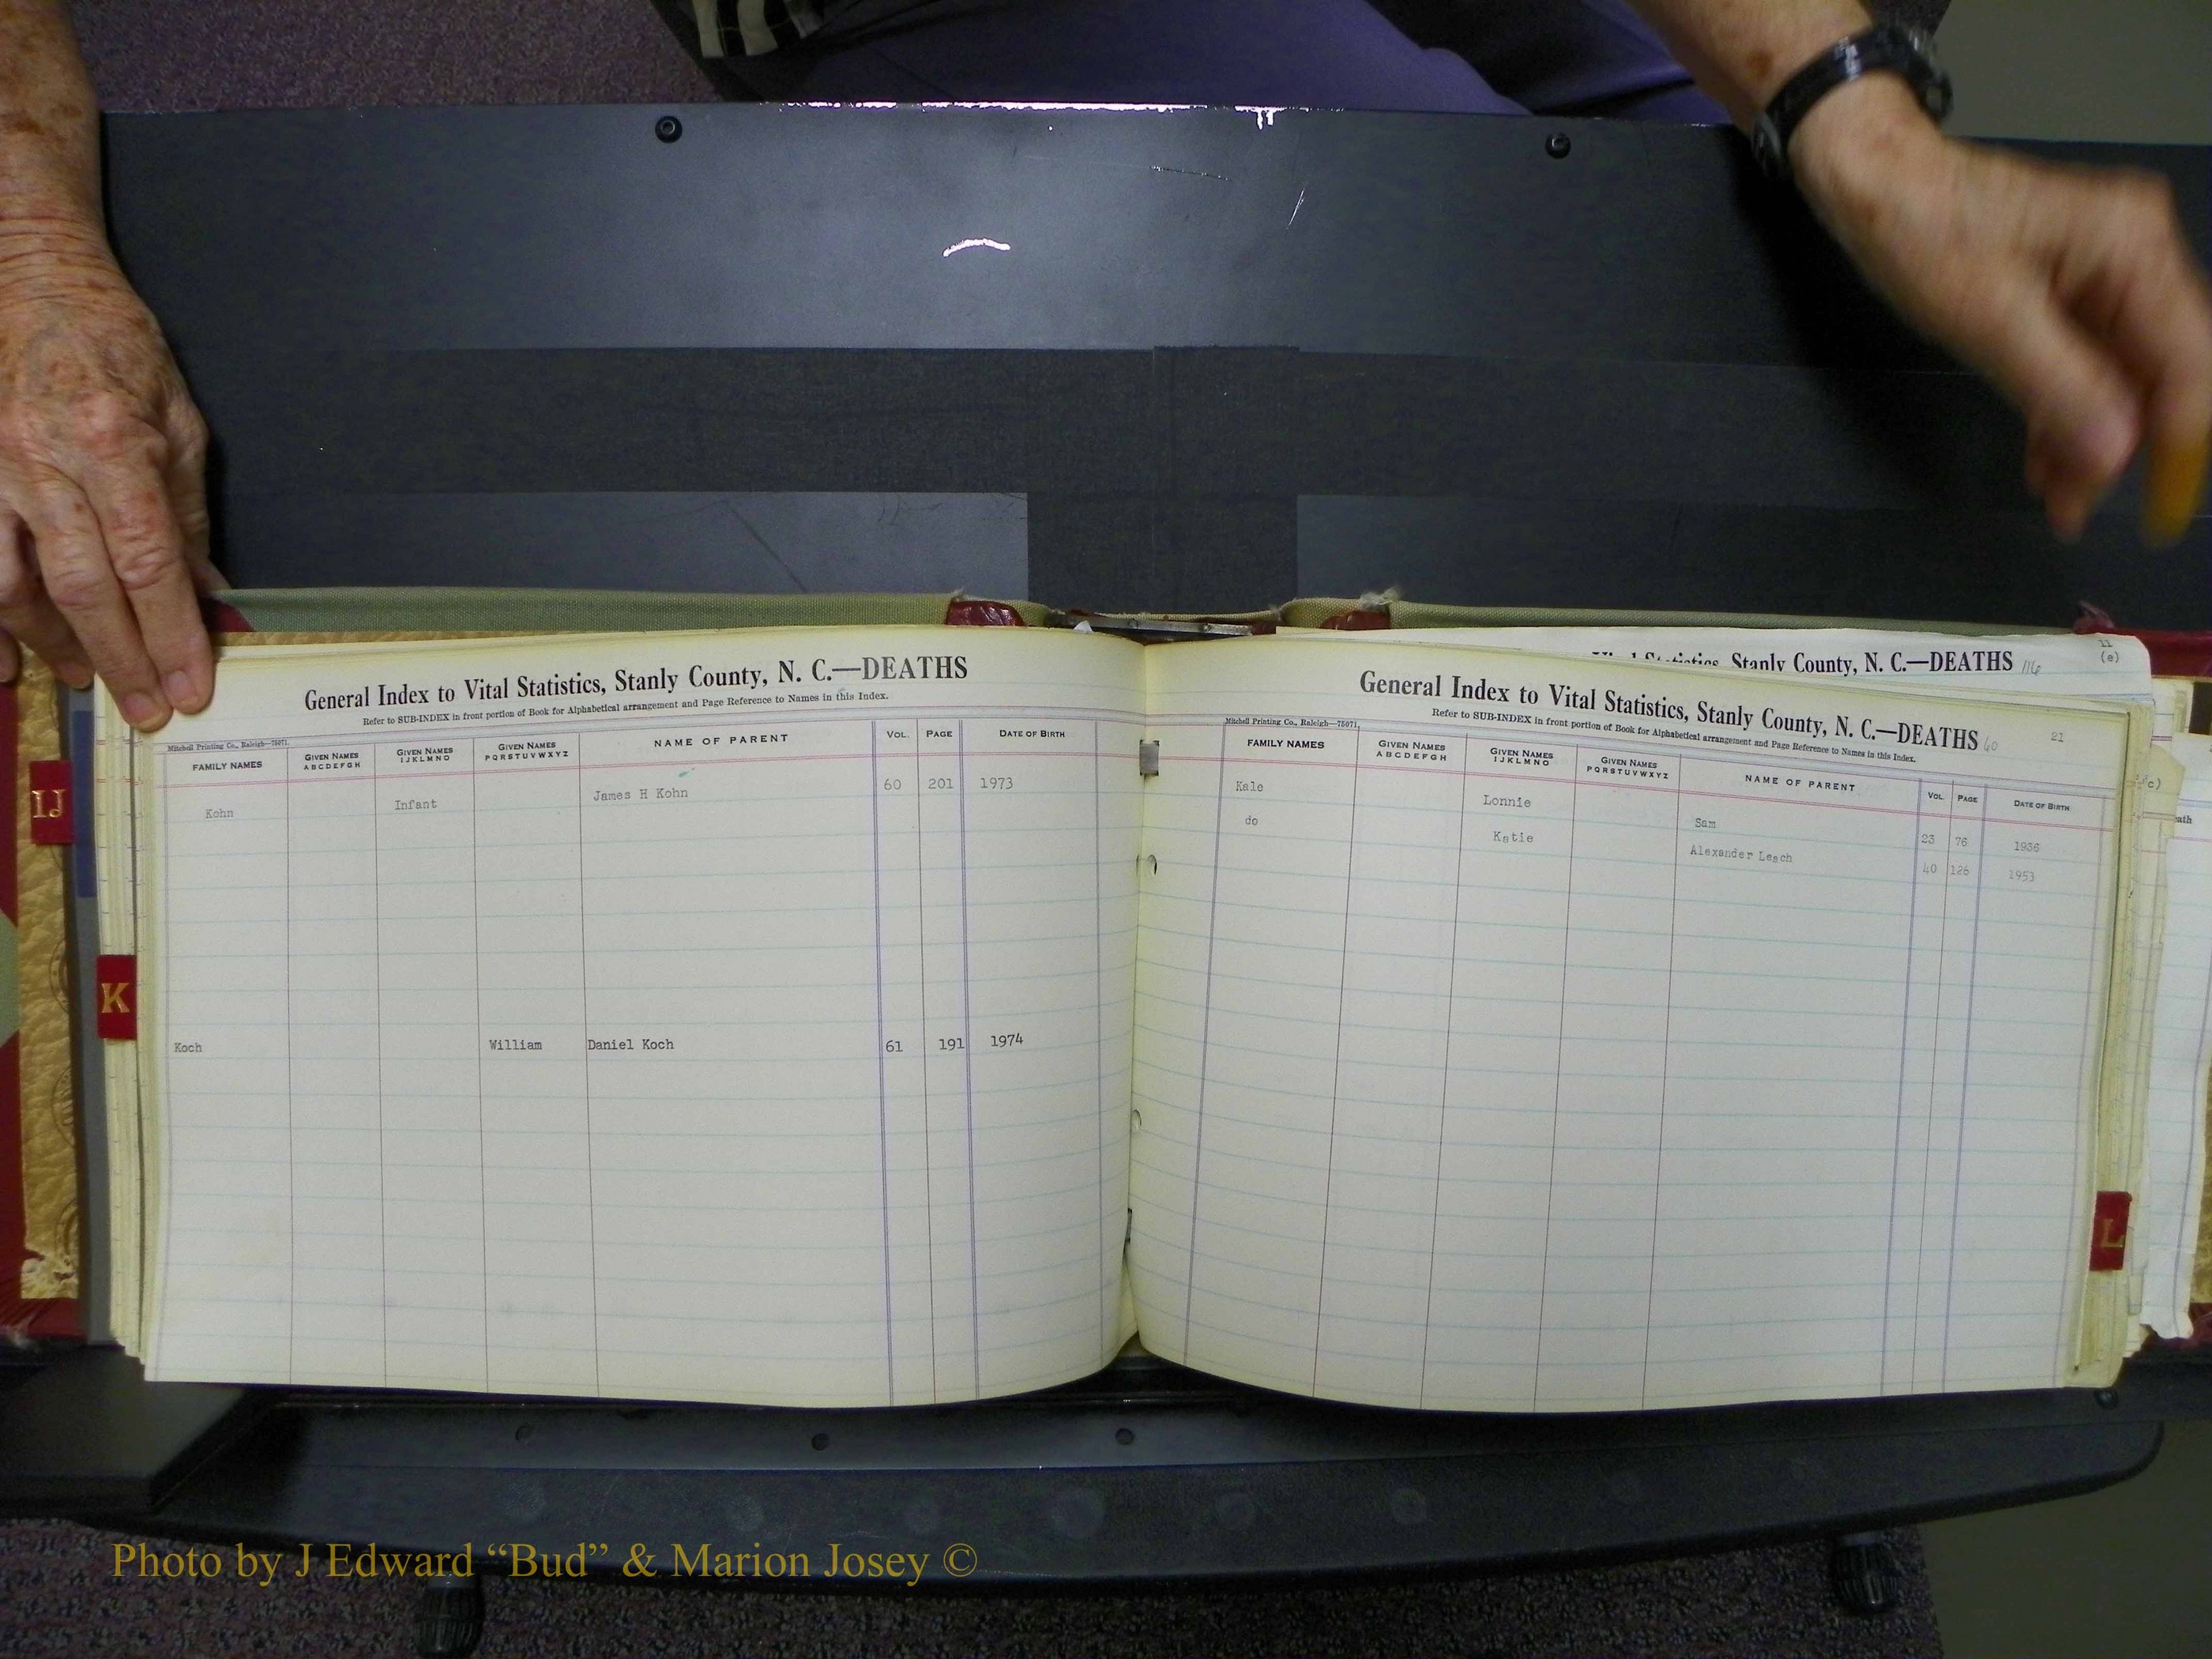 General Index to Vital Statistics, Stanly County, N. C.—DEATHS
Refer to SUB-INDEX in front portion of Book for Alphabetical arrangement and Page Reference to Names in this Index.
Mitchell Printing Co., Raleigh—75071.
FAMILY NAMES GIVEN NAMES ABCDEFGH GIVEN NAMES IJKLMNO GIVEN NAMES PQRSTUVWXYZ NAME OF PARENT VOL. PAGE DATE OF BIRTH
Kohn Infant James H Kohn 60 201 1973
Koch William Daniel Koch 61 191 1974
IJ
K
Statistics, Stanly County, N. C.—DEATHS 116
11
(e)
General Index to Vital Statistics, Stanly County, N. C.—DEATHS 60
21
Refer to SUB-INDEX in front portion of Book for Alphabetical arrangement and Page Reference to Names in this Index.
Mitchell Printing Co., Raleigh—75071.
FAMILY NAMES GIVEN NAMES ABCDEFGH GIVEN NAMES IJKLMNO GIVEN NAMES PQRSTUVWXYZ NAME OF PARENT VOL. PAGE DATE OF BIRTH
Kale Lonnie Sam 23 76 1936
do Katie Alexander Leach 40 126 1953
L
Photo by J Edward “Bud” & Marion Josey ©